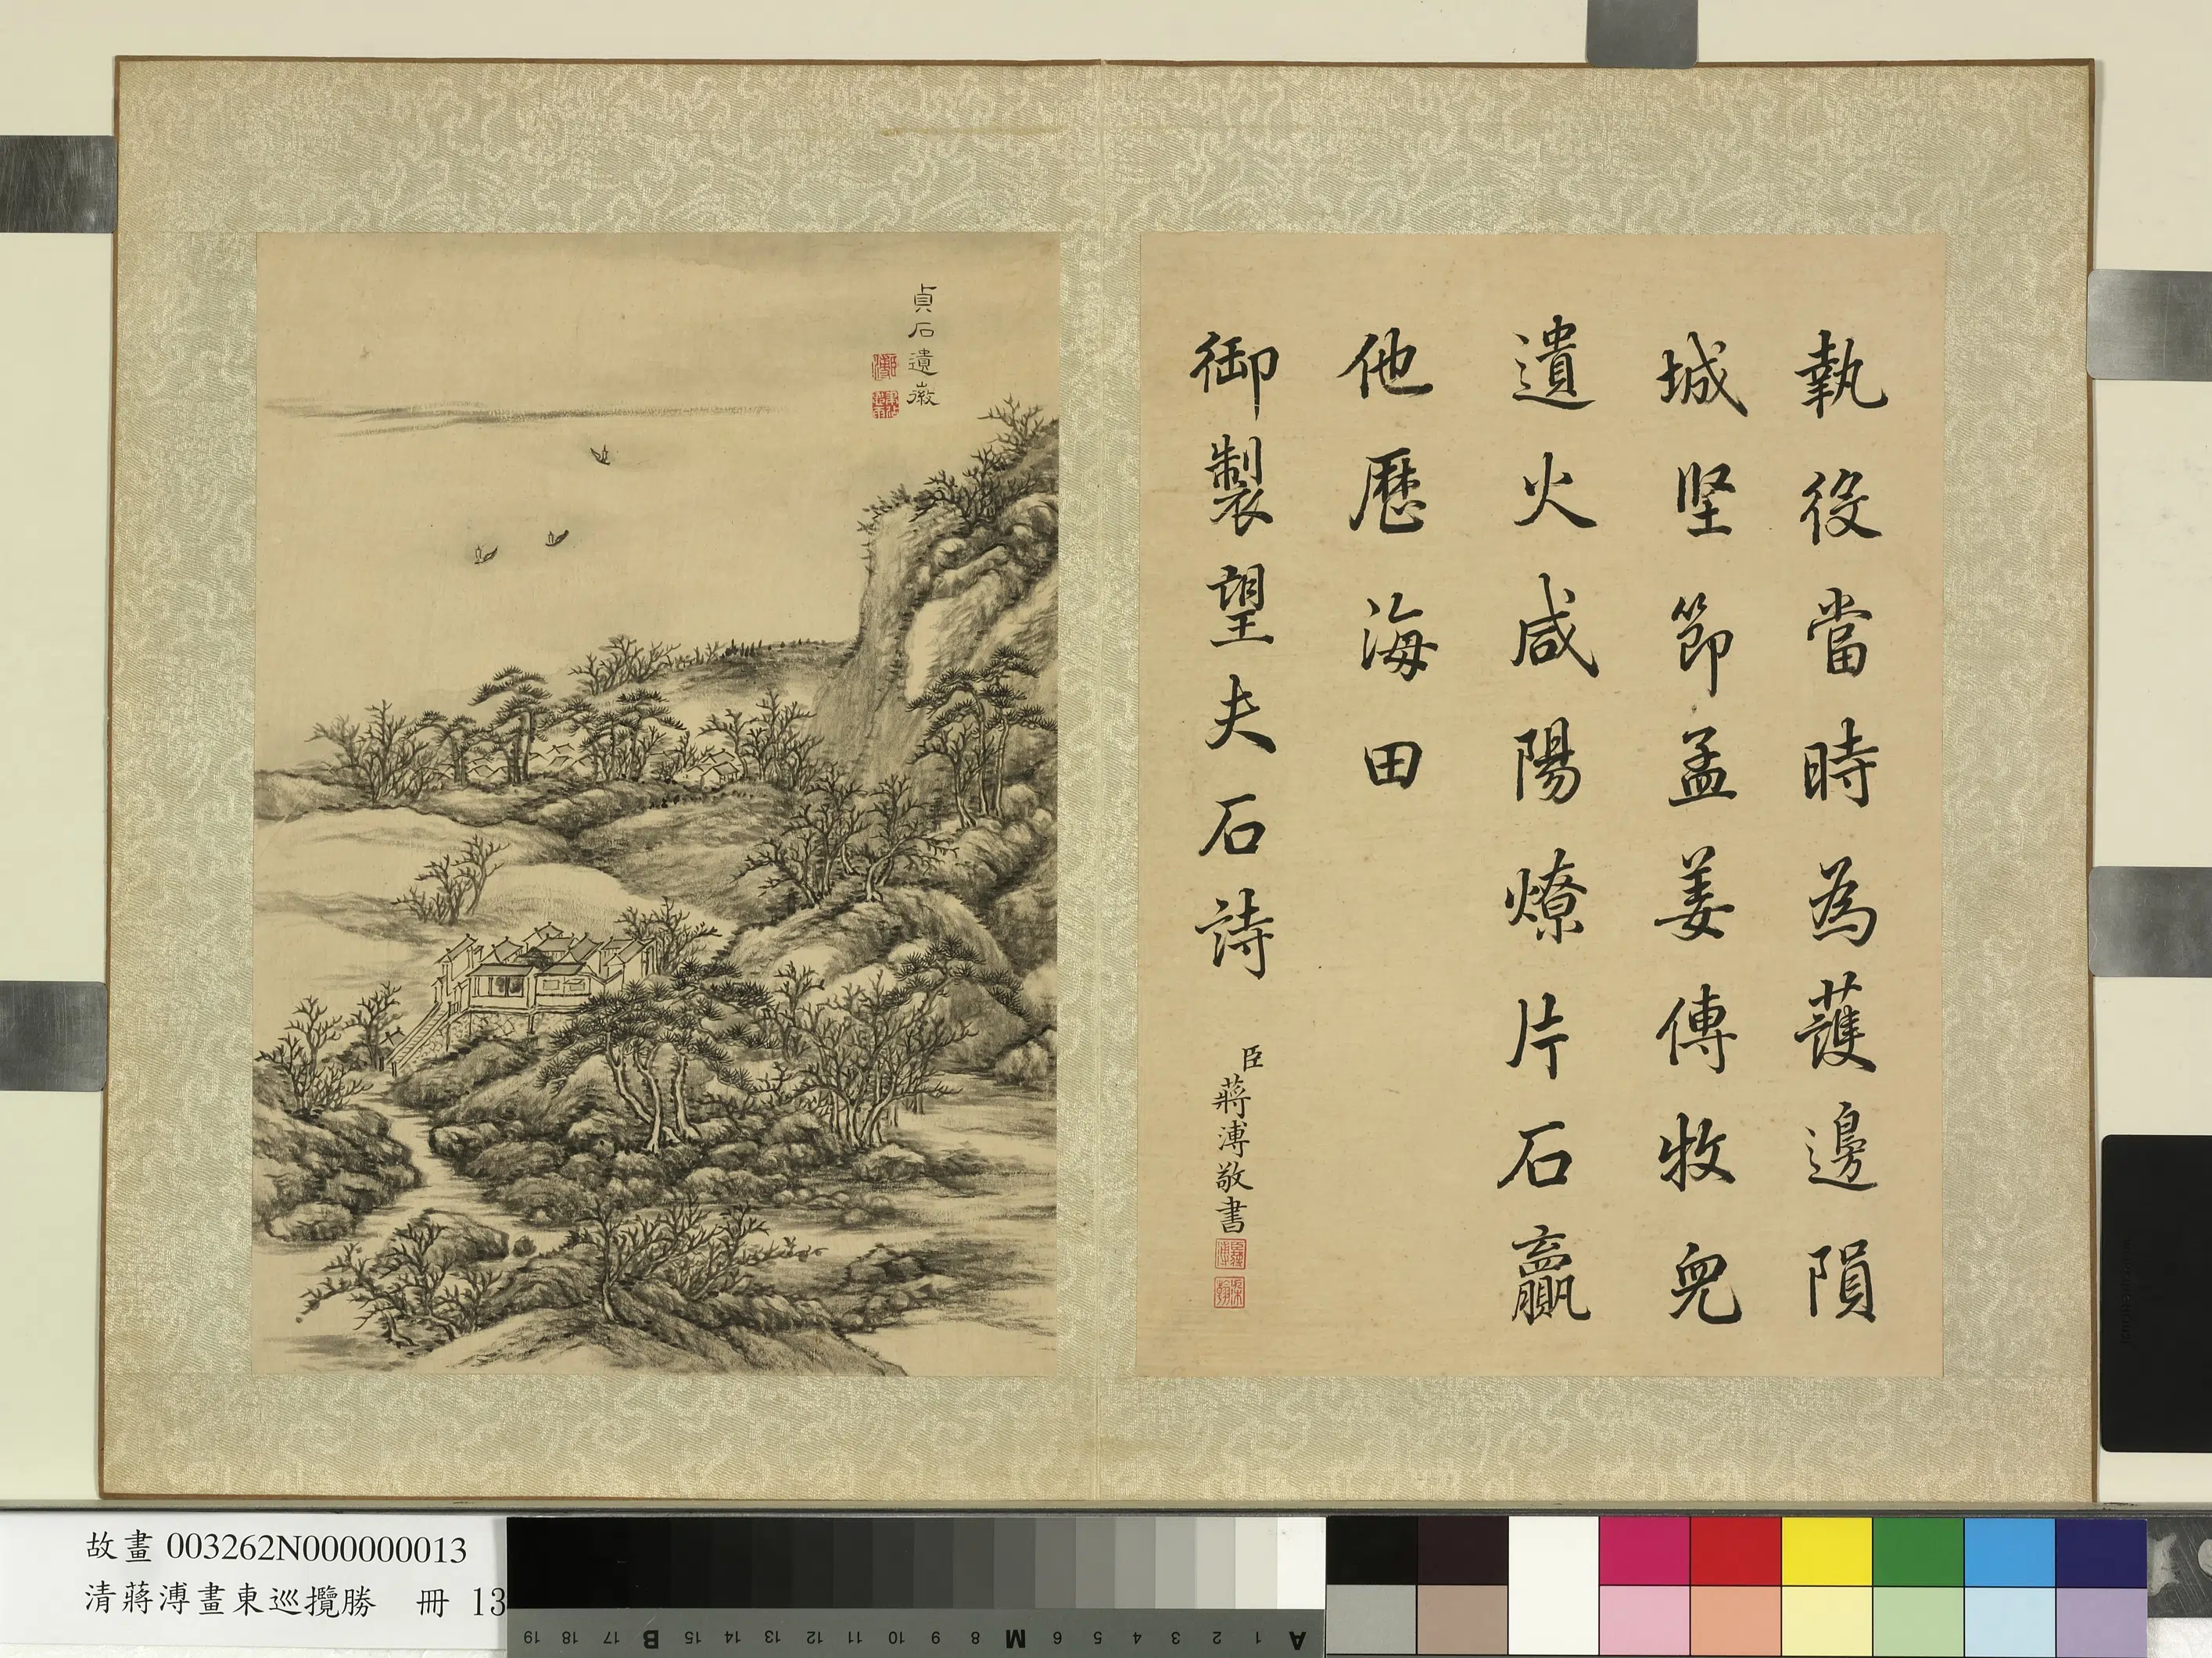 執役當時為護邊隕
城堅節孟姜傳牧兒
遺火咸陽燎片石贏
他歷海田
御製望夫石詩
臣蔣溥敬書
貞石遺徽
故畫 003262N000000013
清蔣溥畫東巡攬勝 冊 13
A 1 2 3 4 5 6 M 8 9 10 11 12 13 14 15 B 17 18 19